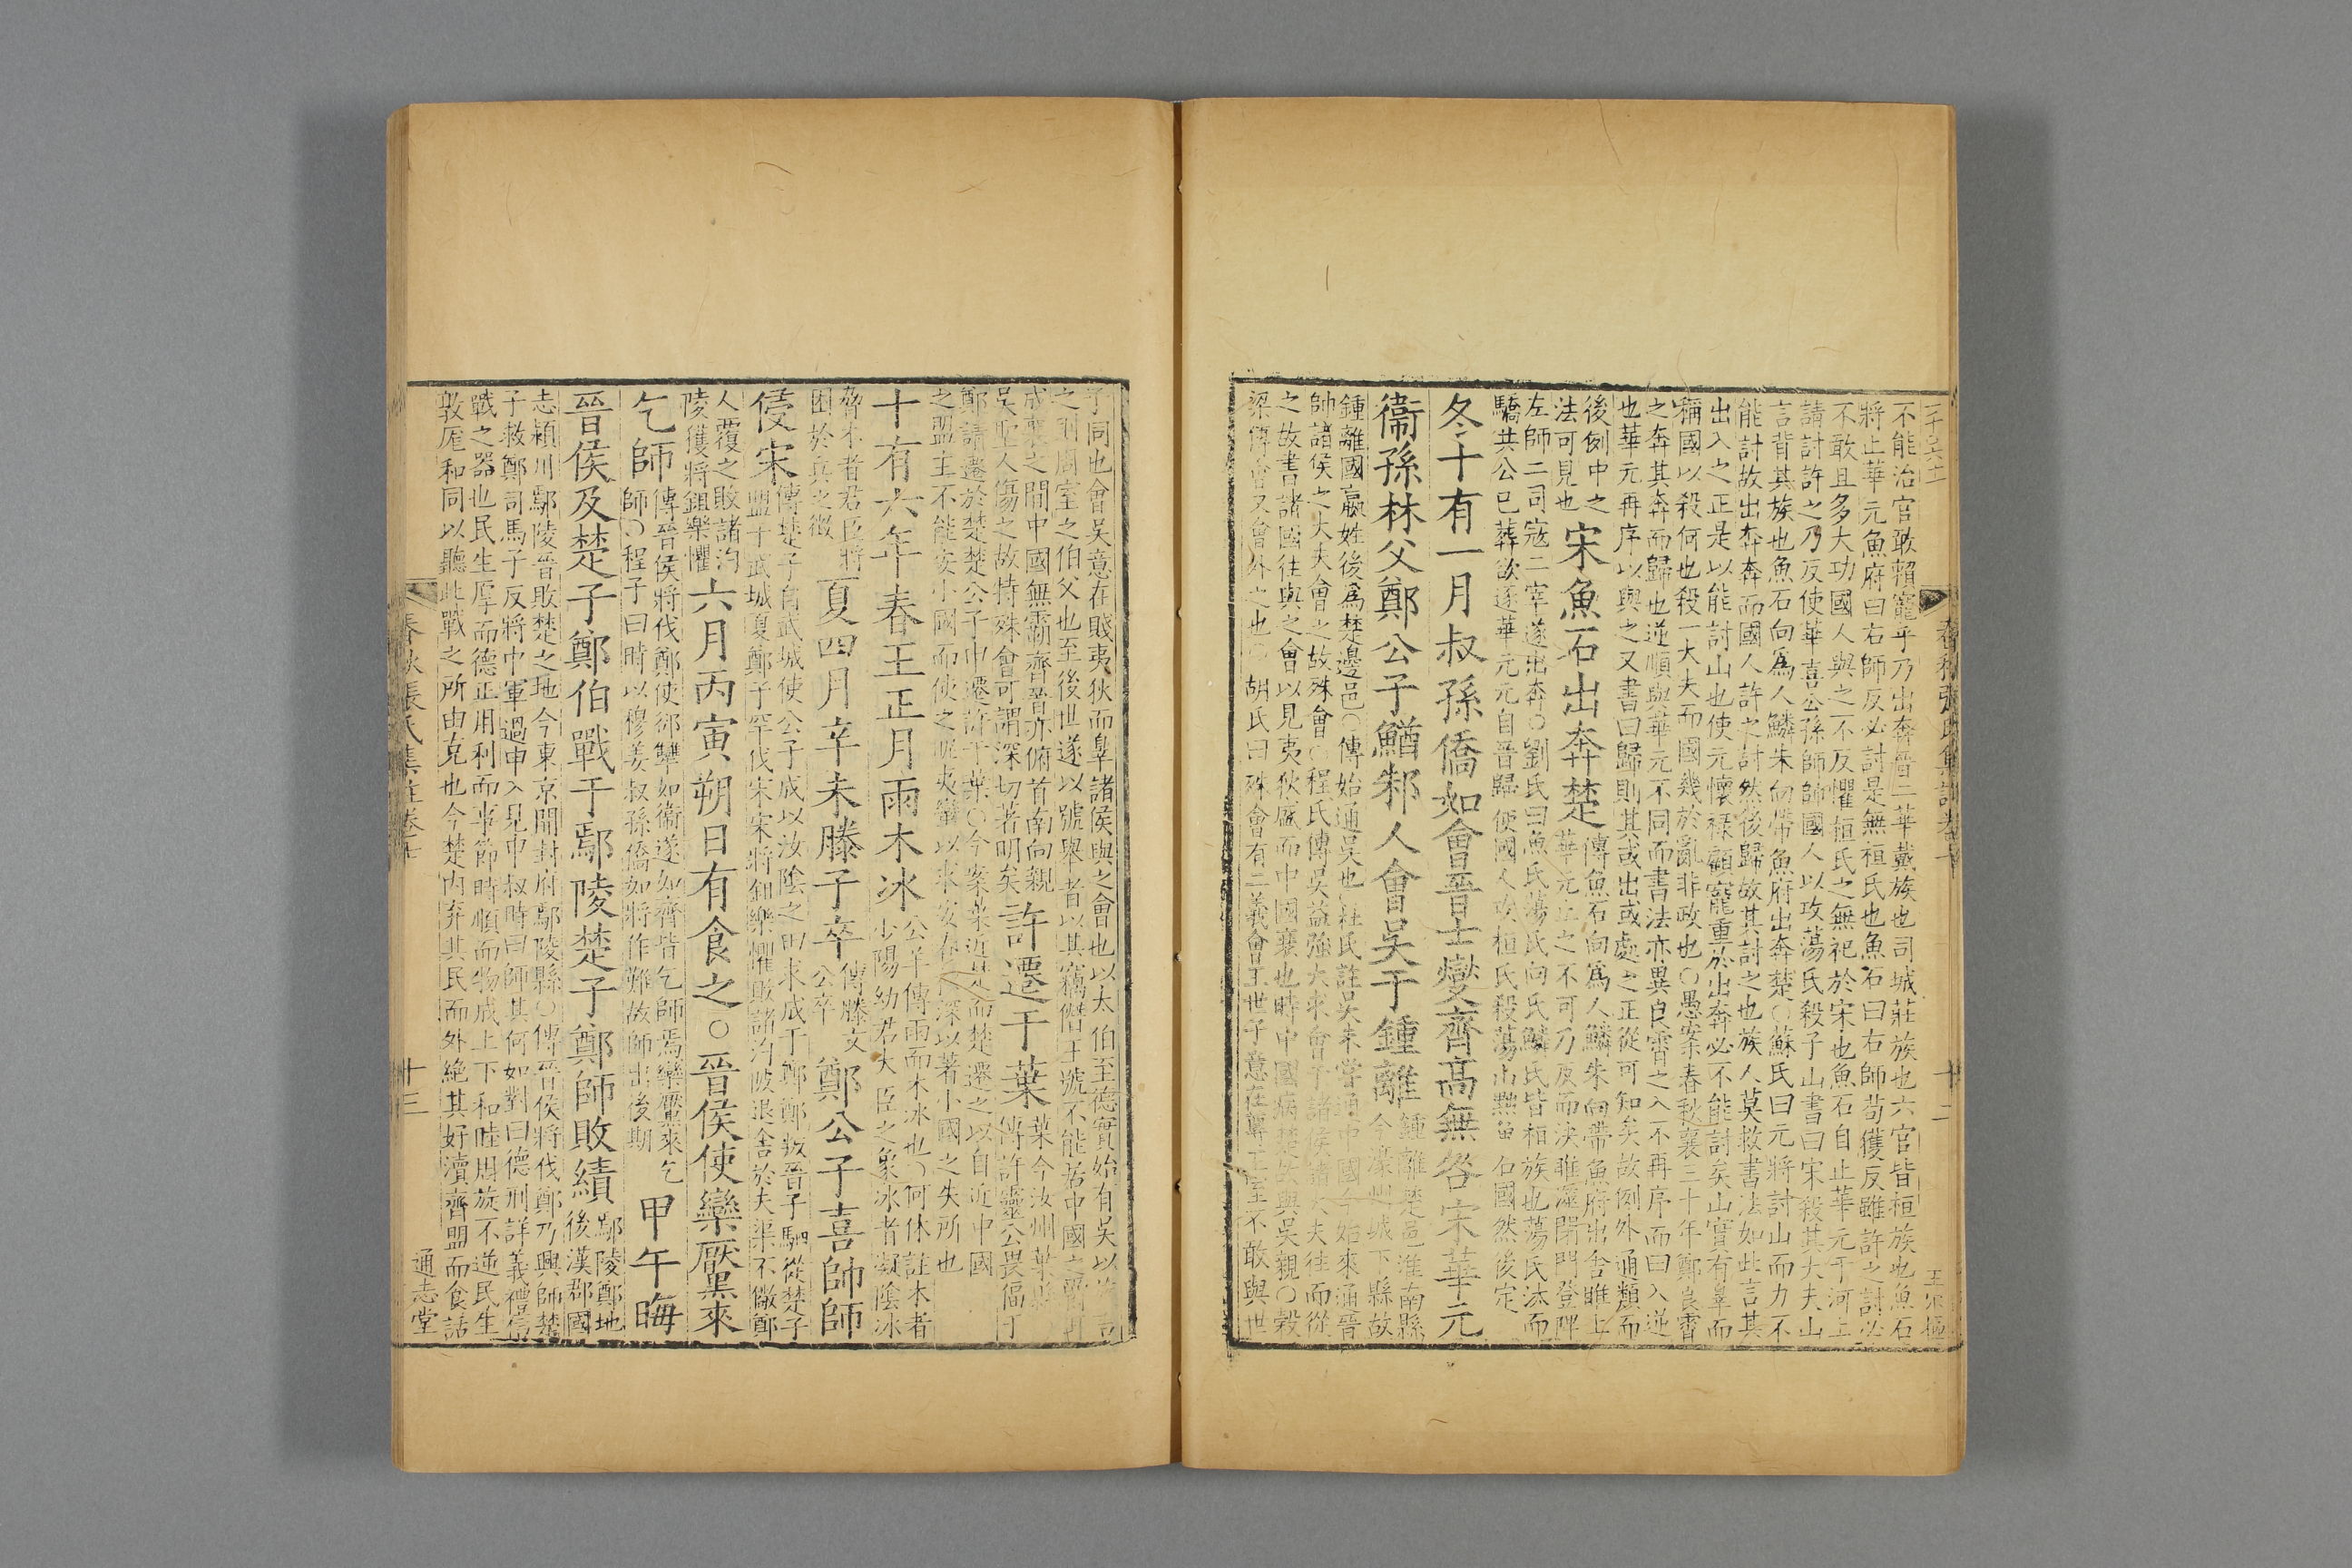 春秋張氏集註卷十
十二
不能治官敢賴寵乎乃出奔晉二華戴族也司城莊族也六官皆桓族也魚石
將止華元魚府曰右師反必討是無桓氏也魚石曰右師苟獲反雖許之討必
不敢且多大功國人與之不反懼桓氏之無祀於宋也魚石自止華元于河上
請討許之乃反使華喜公孫師帥國人以攻蕩氏殺子山書曰宋殺其大夫山
言背其族也魚石向爲人鱗朱向帶魚府出奔楚○蘇氏曰元將討山而力不
能討故出奔奔而國人許之討然後歸故其討之也族人莫救書法如此言其
出入之正是以能討山也使元懷祿顧寵重於出奔必不能討矣山實有辠而
稱國以殺何也殺一大夫而國幾於亂非政也○愚案春秋襄三十年鄭良霄
之奔其奔而歸也逆順與華元不同而書法亦異良霄之入不再序而曰入逆
也華元再序以與之又書曰歸則其或出或處之正從可知矣故例外通類而
後例中之
法可見也
宋魚石出奔楚
傳魚石向爲人鱗朱向帶魚府出舍睢上
華元止之不可乃反而決睢澨閉門登陴
左師二司寇二宰遂出奔○劉氏曰魚氏蕩氏向氏鱗氏皆桓族也蕩氏汰而
驕共公已葬欲逐華元元自晉歸使國人攻桓氏殺蕩山黜魚石國然後定
冬十有一月叔孫僑如會晉士燮齊高無咎宋華元
衞孫林父鄭公子鰌邾人會吳于鍾離
鍾離楚邑淮南縣
今濠州城下縣故
鍾離國嬴姓後爲楚邊邑○傳始通吳也○杜氏註吳未嘗通中國今始來通晉
帥諸侯之大夫會之故殊會○程氏傳吳益強大求會于諸侯諸大夫往而從
之故書諸國往與之會以見夷狄盛而中國衰也時中國病楚故與吳親○穀
梁傳會又會外之也○胡氏曰殊會有二義會王世子意在尊王室不敢與世
子同也會吳意在賤夷狄而辠諸侯與之會也以太伯至德實始有吳以族言
之則周室之伯父也至後世遂以號舉者以其竊僭王號不能居中國之爵
成襄之間中國無霸齊晉亦俯首南向親
吳聖人傷之故特殊會可謂深切著明矣
許遷于葉
葉今汝州葉縣
傳許靈公畏偪于
鄭請遷於楚楚公子申遷許于葉○今案葉近楚而楚遷之以自近中國
之盟主不能安小國而使之從夷蠻以求安春秋深以著小國之失所也
十有六年春王正月雨木冰
公羊傳雨而木冰也○何休註木者
少陽幼君大臣之象冰者凝陰冰
脅木者君臣將
困於兵之徵
夏四月辛未滕子卒
傳滕文
公卒
鄭公子喜帥師
侵宋
傳楚子自武城使公子成以汝陰之田求成于鄭鄭叛晉子駟從楚子
盟于武城夏鄭子罕伐宋宋將鉏樂懼敗諸汋陂退舍於夫渠不儆鄭
人覆之敗諸汋
陵獲將鉏樂懼
六月丙寅朔日有食之○晉侯使欒黶來
乞師
傳晉侯將伐鄭使郤犨如衞遂如齊皆乞師焉欒黶來乞
師○程子曰時以穆姜叔孫僑如將作難故師出後期
甲午晦
晉侯及楚子鄭伯戰于鄢陵楚子鄭師敗績
鄢陵鄭地
後漢郡國
志潁川鄢陵晉敗楚之地今東京開封府鄢陵縣○傳晉侯將伐鄭乃興師楚
子救鄭司馬子反將中軍過申入見申叔時曰師其何如對曰德刑詳義禮信
戰之器也民生厚而德正用利而事節時順而物成上下和睦周旋不逆民生
敦厖和同以聽此戰之所由克也今楚內弃其民而外絶其好瀆齊盟而食話
春秋張氏集註卷十
十三
通志堂